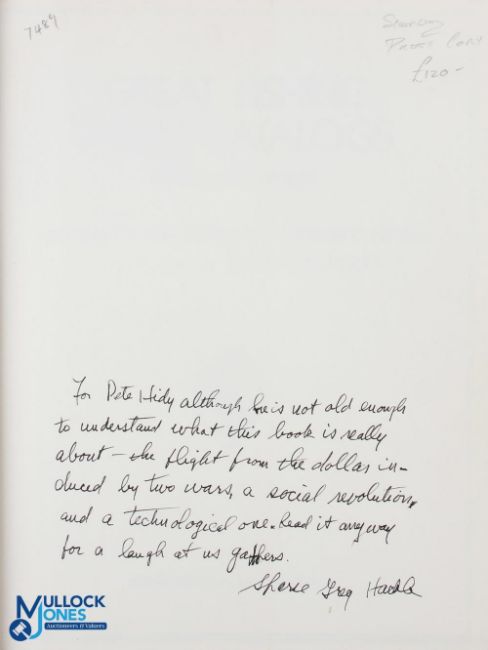 7489
Press Copy
£120-
For Pete Hidy although he is not old enough
to understand what this book is really
about — the flight from the dollar in-
duced by two wars, a social revolution,
and a technological one. Read it anyway
for a laugh at us gaffers.
MULLOCK
JONES
Auctioneers & Valuers